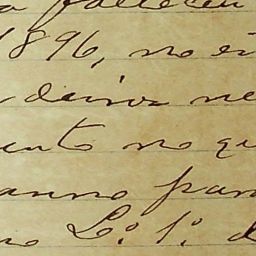 a falleceu
1896, no ei
deixa ne
ento no qu
anno pass
no L.º 1.º d